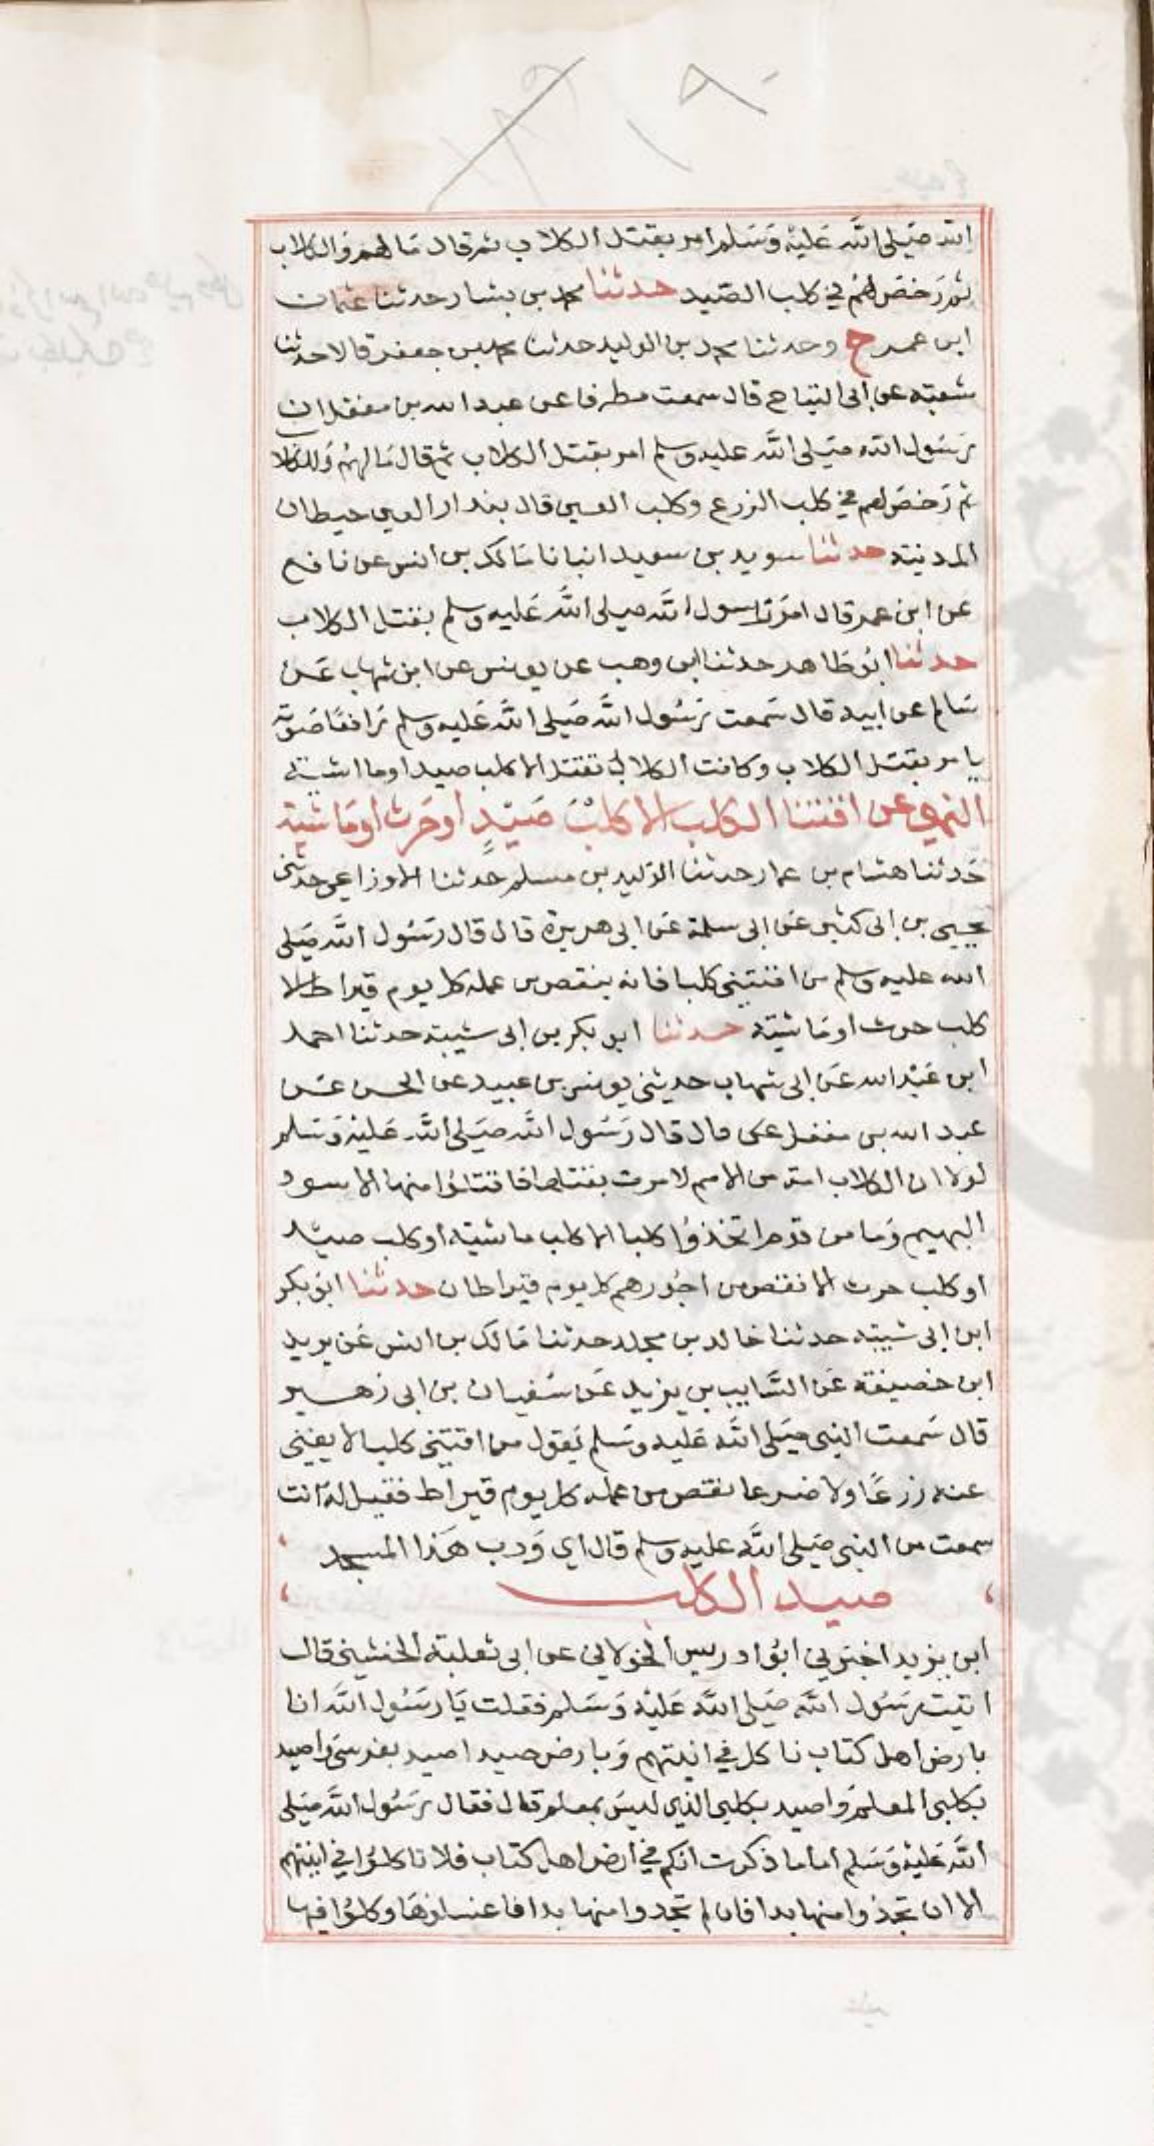 الله صَلى الله عَليْه وَسَلم امر بقتل الكلاب ثم قال مَا لهم وَالكلاب
ثم رَخصَ لهُم في كلب الصَيد حدثنا محمد بن بشار حدثنا عثمان
ابن عمر ح وحدثنا محمد بن الوليد حدثنا محمد بن جعفر قالا حدثنا
شعبة عن ابى التياح قال سمعت مطرفا عن عبد الله بن مغفل ان
رَسُول الله صَلى الله عليه وسلم امر بقتل الكلاب ثم قال مَا لهُم وَللكلا
ثم رَخصَ لهم في كلب الزرع وكلب العين قال بندار العين حيطان
المدينة حدثنا سويد بن سعيد انبانا مَالك بن أنس عن نافع
عَن ابن عمر قال امرَ رَسول الله صلى الله عَليه وسلم بقتل الكلاب
حدثنا ابُو طَاهر حدثنا ابن وهب عن يونس عن ابن شهاب عَن
سَالم عن ابيه قال سَمعت رَسُول الله صَلى الله عَليه وسلم رَافعًا صَوته
يامر بقتل الكلاب وكانت الكلاب تقتل الا كلب صيد اوماشية
النهي عن اقتنا الكلب الا كلبَ صَيْدٍ أو حَرث أو مَاشية
حَدثنا هشام بن عمار حدثنا الوَليد بن مسلم حدثنا الاوزاعي حدثني
يحيى بن ابى كثير عَن ابى سلمة عَن ابى هريرة قال قال رَسُول الله صَلى
الله عليه وسلم من اقتنى كلبا فانه ينقص من عمله كل يوم قيراط الا
كلب حرث او مَاشية حدثنا ابو بكر بن ابى شيبة حدثنا احمد
ابن عَبْد الله عَن ابى شهاب حديثنى يونس بن عبيد عن الحسن عَن
عبد الله بن مغفل قال قال رَسُول الله صَلى الله عَليْه وَسَلم
لولا ان الكلاب امة من الامم لامرت بقتلها فاقتلوُا منها الاسود
البهيم وَما من قوم اتخذوُا كلبا الا كلب ماشية أو كلب صيد
او كلب حرث الا نقص من اجُورهم كل يوم قيراطان حدثنا ابوُ بكر
ابن ابى شيبة حدثنا خالد بن مخلد حدثنا مَالك بن انس عَن يزيد
ابن خصيفة عَن السَّايب بن يزيد عَن سُفيان بن ابى زهير
قال سَمعت النبى صَلى الله عَليه وسَلم يَقول من اقتنى كلبا لا يغنى
عنه زرعًا ولا ضرعا نقص من عمله كل يوم قيراط فقيل له انت
سمعت من النبى صَلى الله عليه وسلم قال اي وَرب هَذا المسجد
صيد الكلب
ابن يزيد اخبرني ابُو ادريس الخولاني عن ابى ثعلبة الخشني قال
اتيت رسَُول الله صَلى الله عَليْه وَسَلم فقلت يَا رسَُول الله انا
بارض اهل كتاب ناكل في انيتهم وَبارض صيد اصيد بقوسى وَاصيد
بكلبى المعلم وَاصيد بكلبى الذي ليسَ بمعلم قال فقال رَسُول الله صَلى
الله عَليْه وَسَلم اما ما ذكرت انكم في ارض اهل كتاب فلا تاكلوُا في انيتهم
الا ان تجدوا منها بدا فان لم تجدوا منها بدا فاغسلوهَا وكلوُا فيها